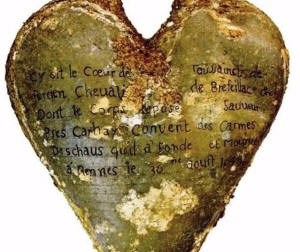 Cy Git le Cœur de Toussaincts de
Perrien Chevali de Brefeillac
Dont le Corps repose Sauveur
Pres Carhay Convent des Carmes
Deschaus quil a fonde et
A Rennes le 30 aoust